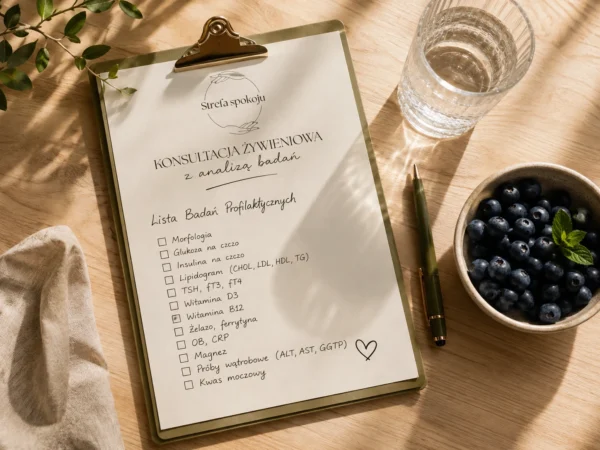 Strefa spokoju
KONSULTACJA ŻYWIENIOWA
z analizą badań
Lista Badań Profilaktycznych
Morfologia
Glukoza na czczo
Insulina na czczo
Lipidogram (CHOL, LDL, HDL, TG)
TSH, fT3, fT4
Witamina D3
Witamina B12
Żelazo, ferrytyna
OB, CRP
Magnez
Próby wątrobowe (ALT, AST, GGTP)
Kwas moczowy